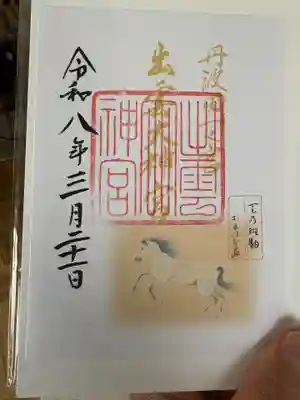 丹波
出雲大神宮
出雲大神宮
令和八年三月二十一日